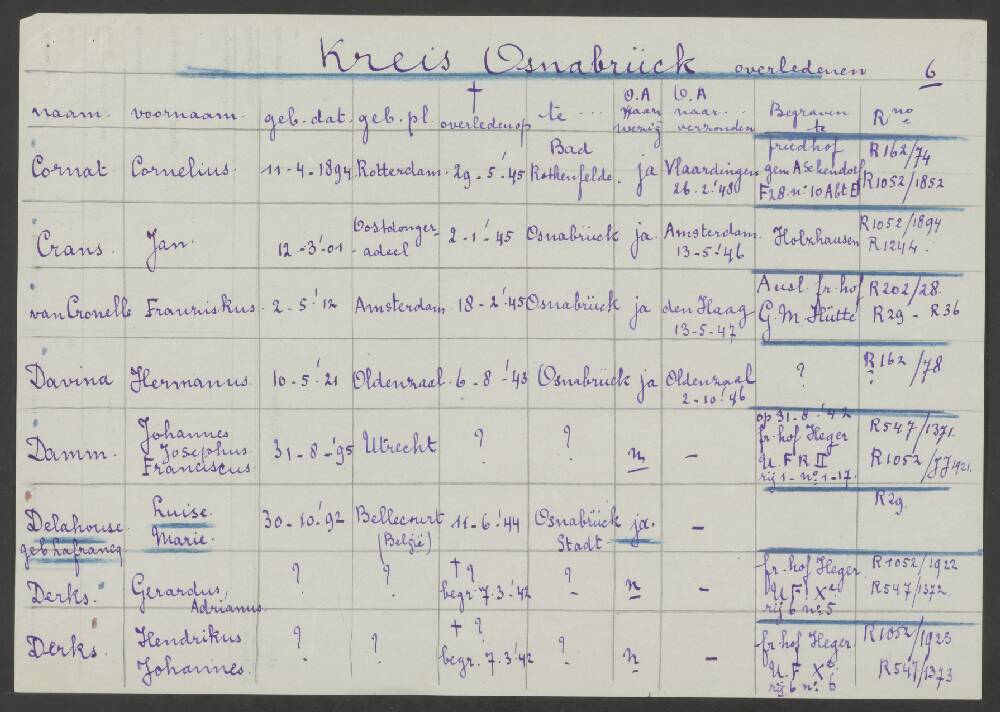 Kreis Osnabrück overledenen 6
naam. voornaam. geb. dat. geb. pl. † overleden op te ... O.A aanwezig O.A naar... verzonden Begraven te R no
Cornat. Cornelius. 11-4-1894 Rotterdam. 29-5-'45 Bad Rothenfelde. ja Vlaardingen 26.2.'48 friedhof gem Aschendorf F28. no 10 Abt E R162/74 R1052/1852
Crans. Jan. 12-3-'01 Oostdongeradeel 2-1-'45 Osnabrück ja. Amsterdam. 13-5-'46 Holzhausen R1052/1894 R1244.
van Cronelle Franziskus. 2-5-'12 Amsterdam. 18-2-'45 Osnabrück ja den Haag 13-5-47 Ausl. fr. hof G.M. Hütte R202/28. R29 - R36
Davina Hermanus. 10-5-'21 Oldenzaal. 6-8-'43 Osnabrück ja Oldenzaal 2-10-'46 ? R162/78 ?
Damm. Johannes Josephus Franciscus. 31-8-'95 Utrecht ? ? n - op 31-8-'42 fr. hof Heger U. F R II rij 1 - no 1-17. R547/1371. R1052/1921.
Delahouse geb Lafrancq Luise. Marie. 30-10-'92 Bellecourt (België) 11-6-'44 Osnabrück Stadt. ja. - R29.
Derks. Gerardus Adrianus ? ? † ? begr. 7.3-'42 ? n - fr. hof Heger U F. X e rij 6 no 5 R1052/1922 R547/1372.
Derks. Hendrikus Johannes. ? ? † ? begr. 7.3-'42 ? n - fr. hof Heger. U. F X e. rij 6 no 6 R1052/1923 R547/1373